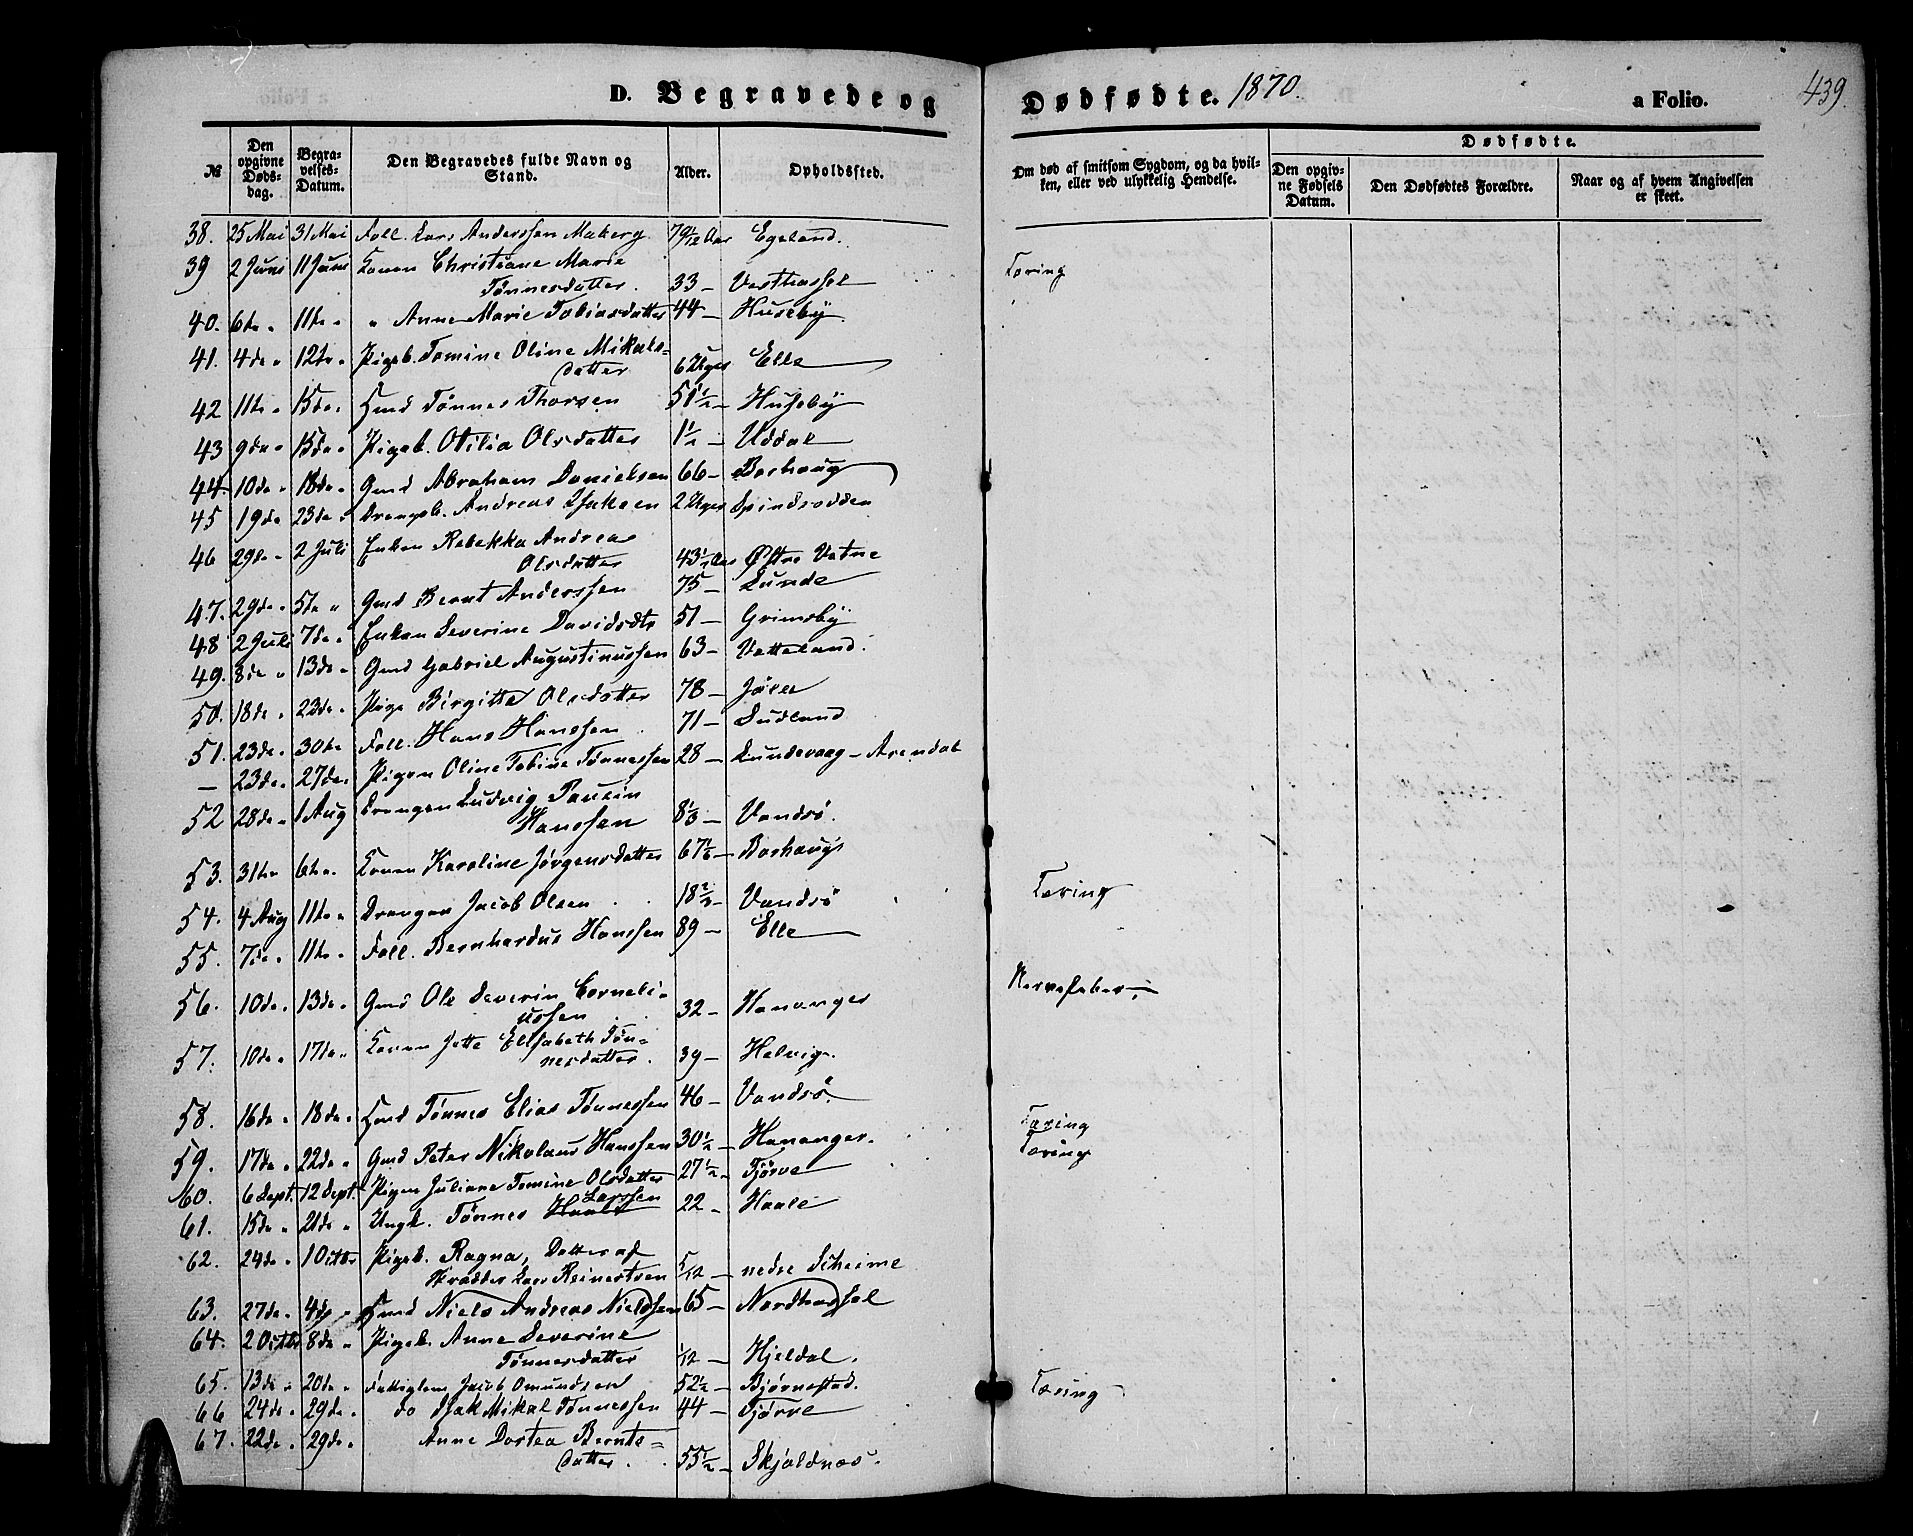 D. Begravede og Dødfødte. 1870. a Folio. 439.
№ Den opgivne Dødsdag. Begravelses-Datum. Den Begravedes fulde Navn og Stand. Alder. Opholdssted. Om død af smitsom Sygdom, og da hvilken, eller ved ulykkelig Hendelse. Dødfødte. Den opgivne Fødsels Datum. Den Dødfødtes Forældre. Naar og af hvem Angivelsen er skeet.
38. 25 Mai 31 Mai Foll. Lars Anderssen Maberg 79 Aar Egeland.
39 2 Juni 11 Juni Konen Christiane Marie Tæring
Tønnesdatter. 33 – Vesthassel
40. 6te " 11te " " Anne Marie Tobiasdatter 44 – Huseby
41. 4de " 12te " Pigeb. Tomine Oline Mikals-
datter 6 Uger Elle
42 11te " 15de " Gmd Tønnes Thorsen 51 1/2 – Huseby
43 9de " 15de " Pigeb. Otilia Olsdatter 1 1/2 – Uddal
44 10de " 18de " Gmd Abraham Danielsen 66 – Borhaug
45 19de 23de " Drengeb. Andreas Isaksen 2 Uger Spindsodden
46 29de " 2 Juli Enken Rebekka Andrea
Olsdatter 43 1/2 Aar Østre Vatne
47. 29de " 5te " Gmd Bernt Anderssen 75 – Lunde
48 2 Juli 7de " Enken Severine Davidsdtr 51 – Grimsby
49. 8de " 13de " Gmd Gabriel Augustinussen 63 – Vetteland.
50. 18de " 23de " Pige Birgitte Olsdatter 78 – Jøler
51. 23de " 30te Foll. Hans Hanssen 71 – Sudland
– 23de " 27de " Pigen Oline Tobine Tønnessen 28 – Lundevaag – Arendal
52 28de " 1 Aug Drengen Ludvig Paulin
Hanssen 8 1/3 – Vandsø.
53. 31te 6te " Konen Karoline Jørgensdatter 67 1/6 – Borhaug
54. 4 Aug 11te " Drengen Jacob Olsen 18 2/3 – Vandsø Tæring
55. 7de " 11te " Foll. Bernhardus Hanssen 89 – Elle
56. 10de " 13de " Gmd Ole Severin Corneli- Nervefeber
ussen 32 – Hananger
57. 10de " 17de " Konen Jette Elisabeth Tøn-
nesdatter. 39 – Helvig.
58. 16de " 18de " Gmd Tønnes Elias Tønnessen 46 – Vandsø.
59. 17de " 22de " Gmd Peter Nikolaus Hanssen 30 1/2 – Hananger. Tæring
60. 6 Sept. 12 Sept. Pigen Juliane Tomine Olsdatter 27 1/2 – Tjørve Tæring
61. 15de " 21de " Ungk. Tønnes Haale Larssen 22 – Haale
62. 24de " 1 Octbr Pigeb. Ragna, Datter af
Skrædder Lars Reinertsen 5/12 – nedre Scheime
63. 27de " 4de " Gmd Niels Andreas Nielssen 65 – Nordhassel
64. 2 Octbr 8de " Pigeb. Anne Severine
Tønnesdatter 1/12 – Hjeldal.
65. 13de " 20de " Fattiglem Jacob Omundsen 52 1/2 – Bjørnestad. Tæring
66 24de " 29de " do Isak Mikal Tønnessen 44 – Tjørve
67. 22de " 29de " Anne Dortea Bernts-
datter. 55 1/2 – Skjoldnæs.